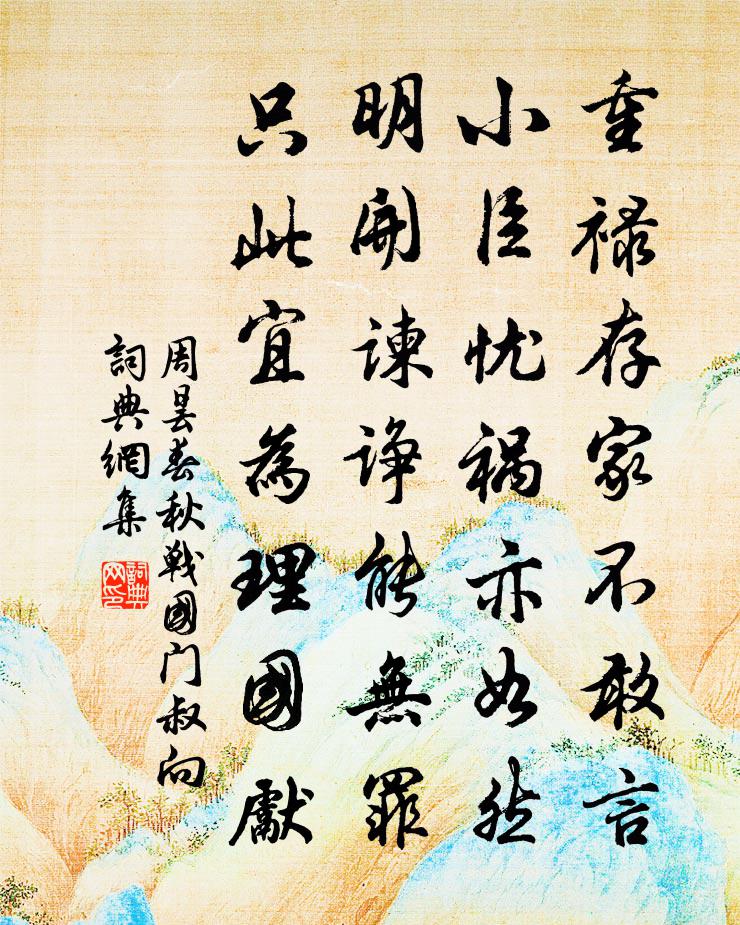 重禄存家不敢言
小臣忧祸亦如然
明開諫諍能無罪
只此宜為理國獻
周昙春秋戰國门叔向
詞典網集
詞典网印